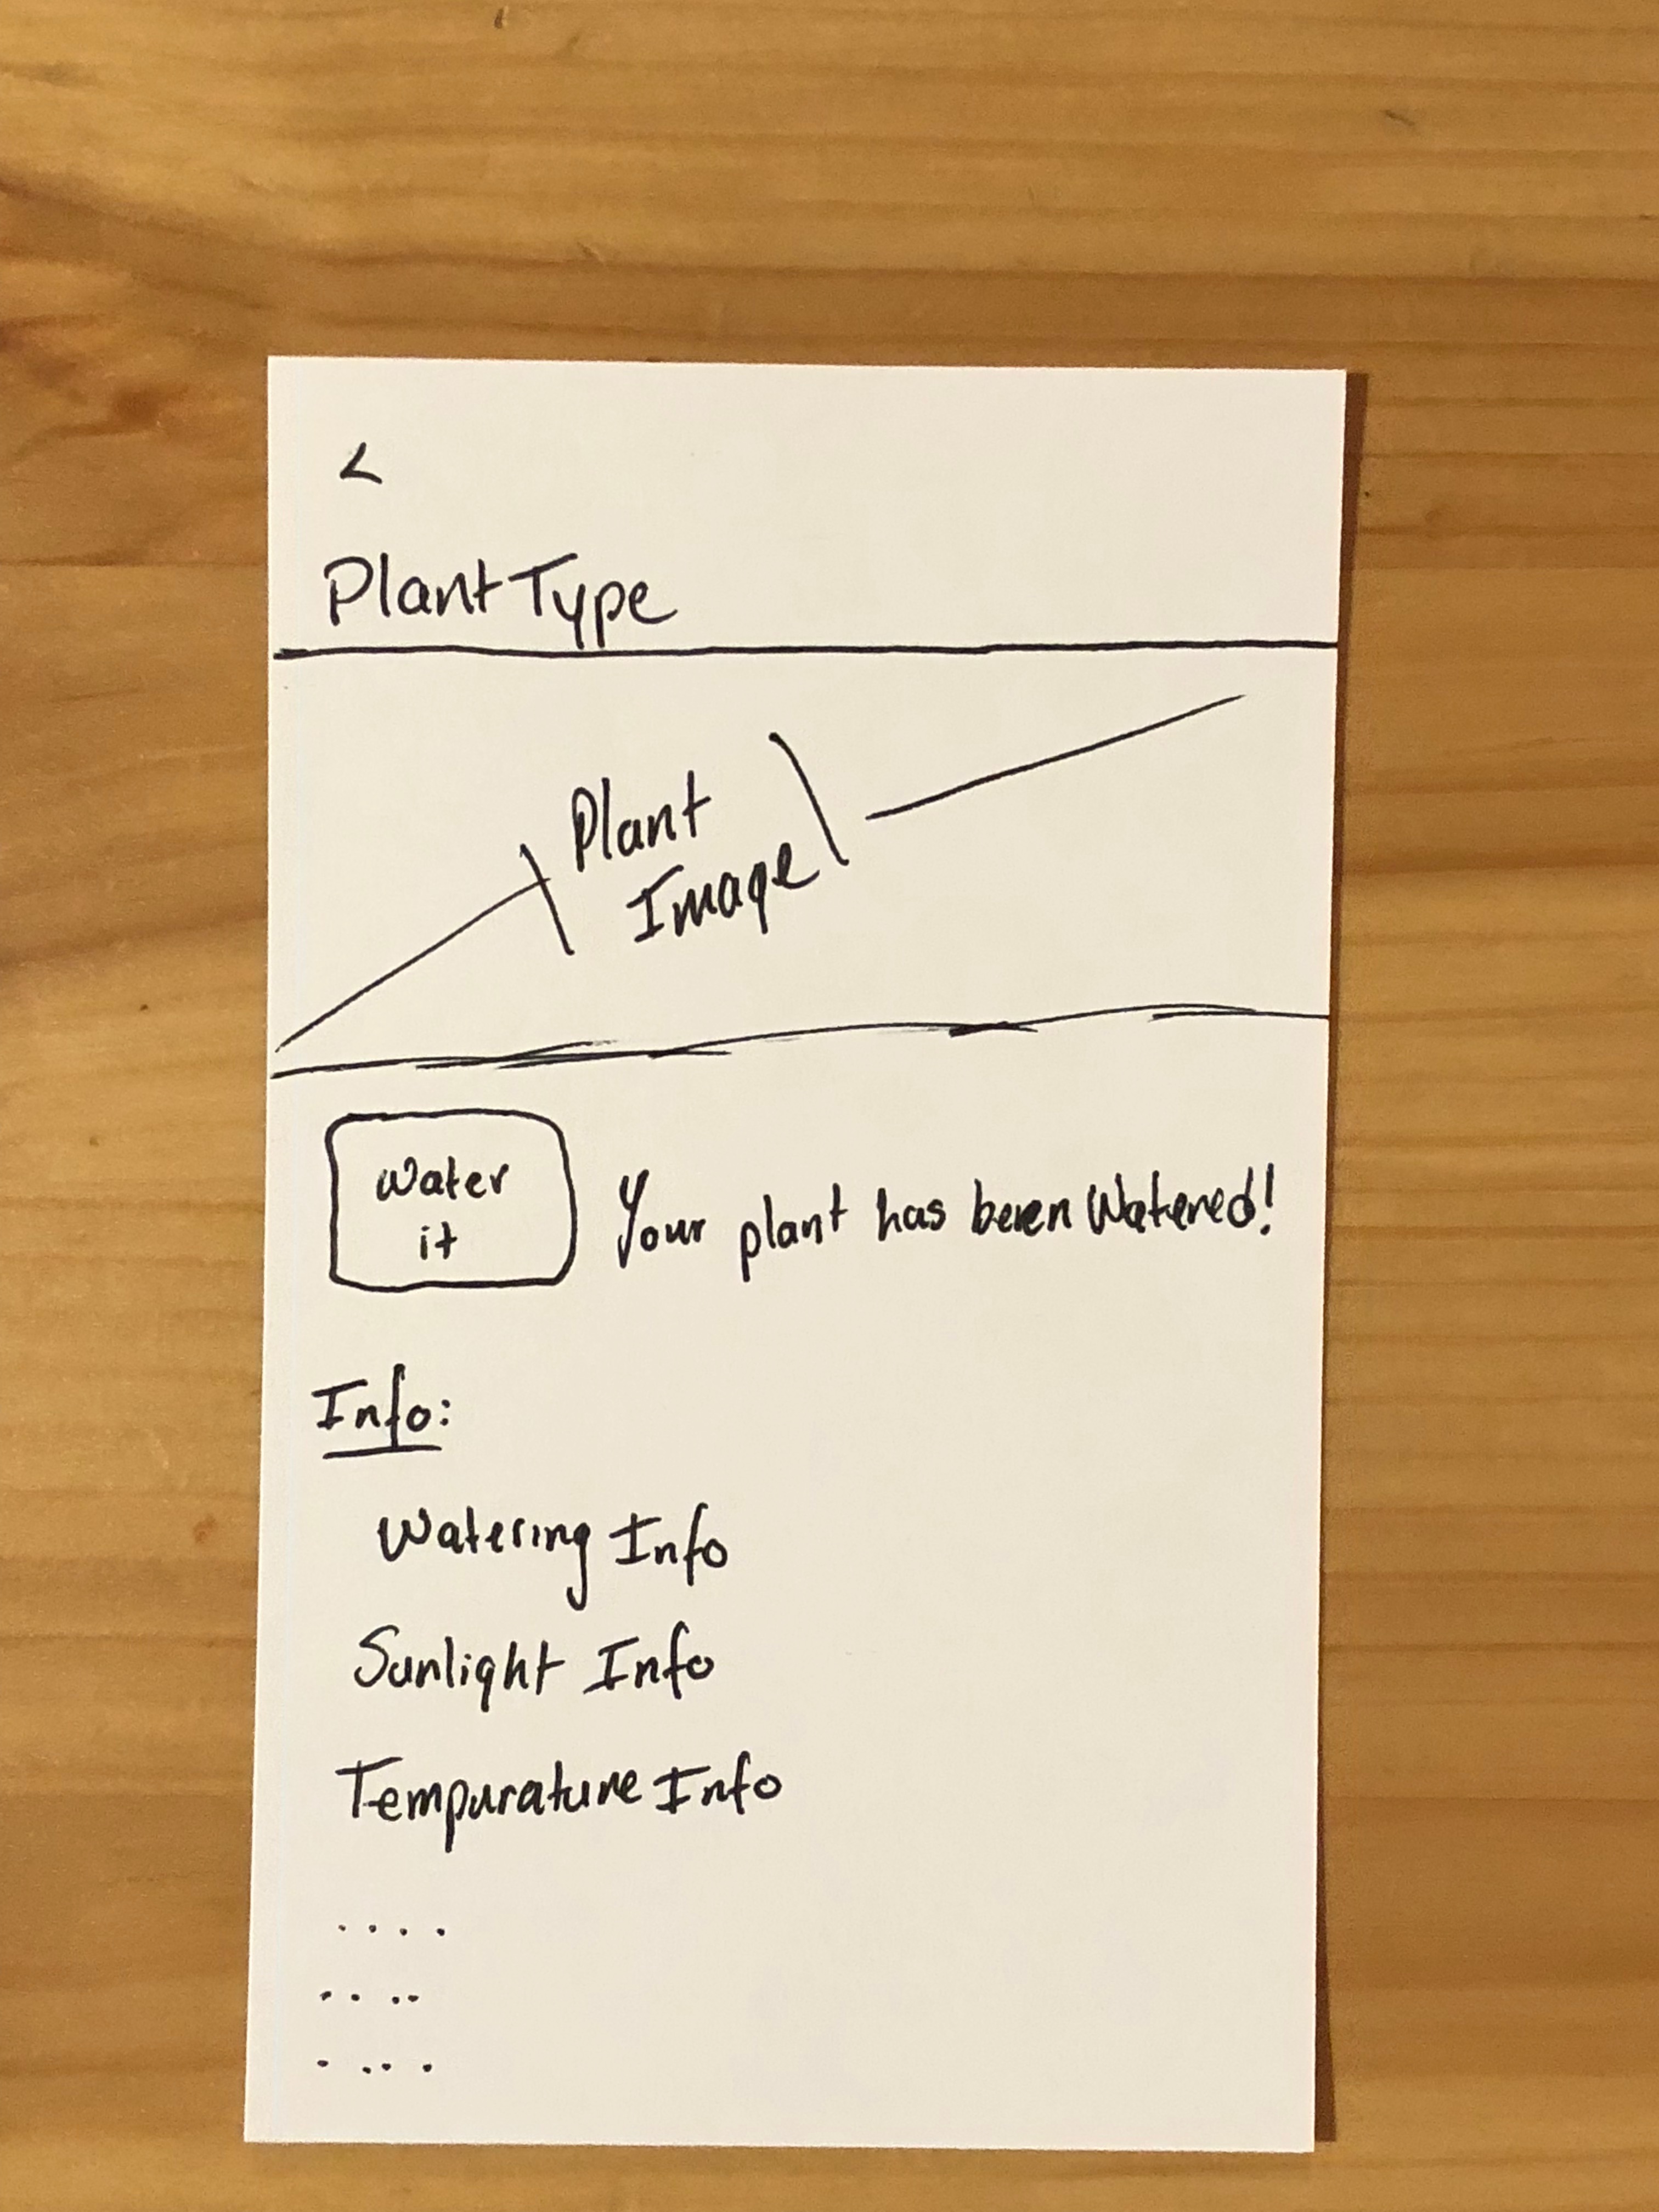 <
Plant Type
Plant
Image
Water
it
Your plant has been Watered!
Info:
Watering Info
Sunlight Info
Tempurature Info
. . . .
. . . .
. . . .